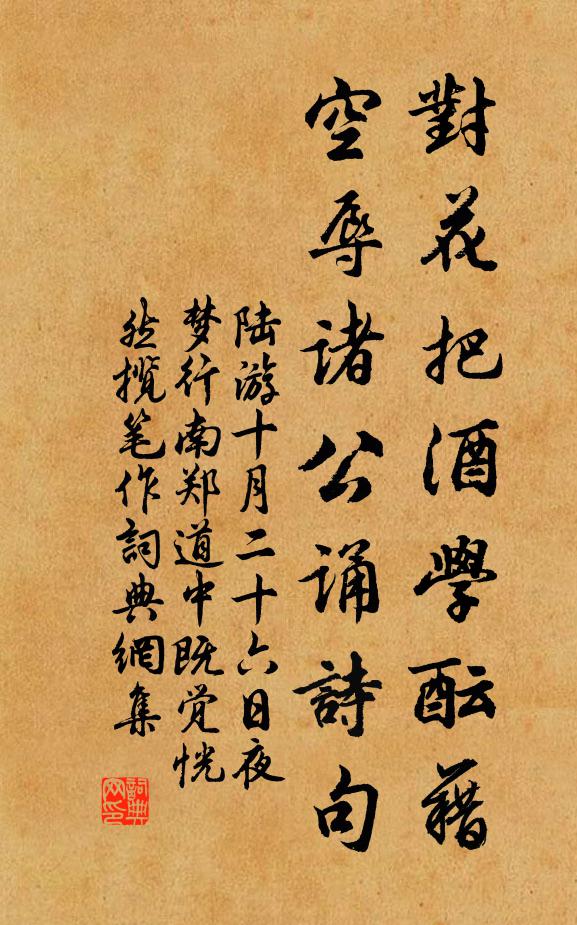 對花把酒學酝藉
空辱諸公誦詩句
陆游十月二十六日夜
梦行南郑道中既觉恍
然揽笔作詞典網集
詞典
网印